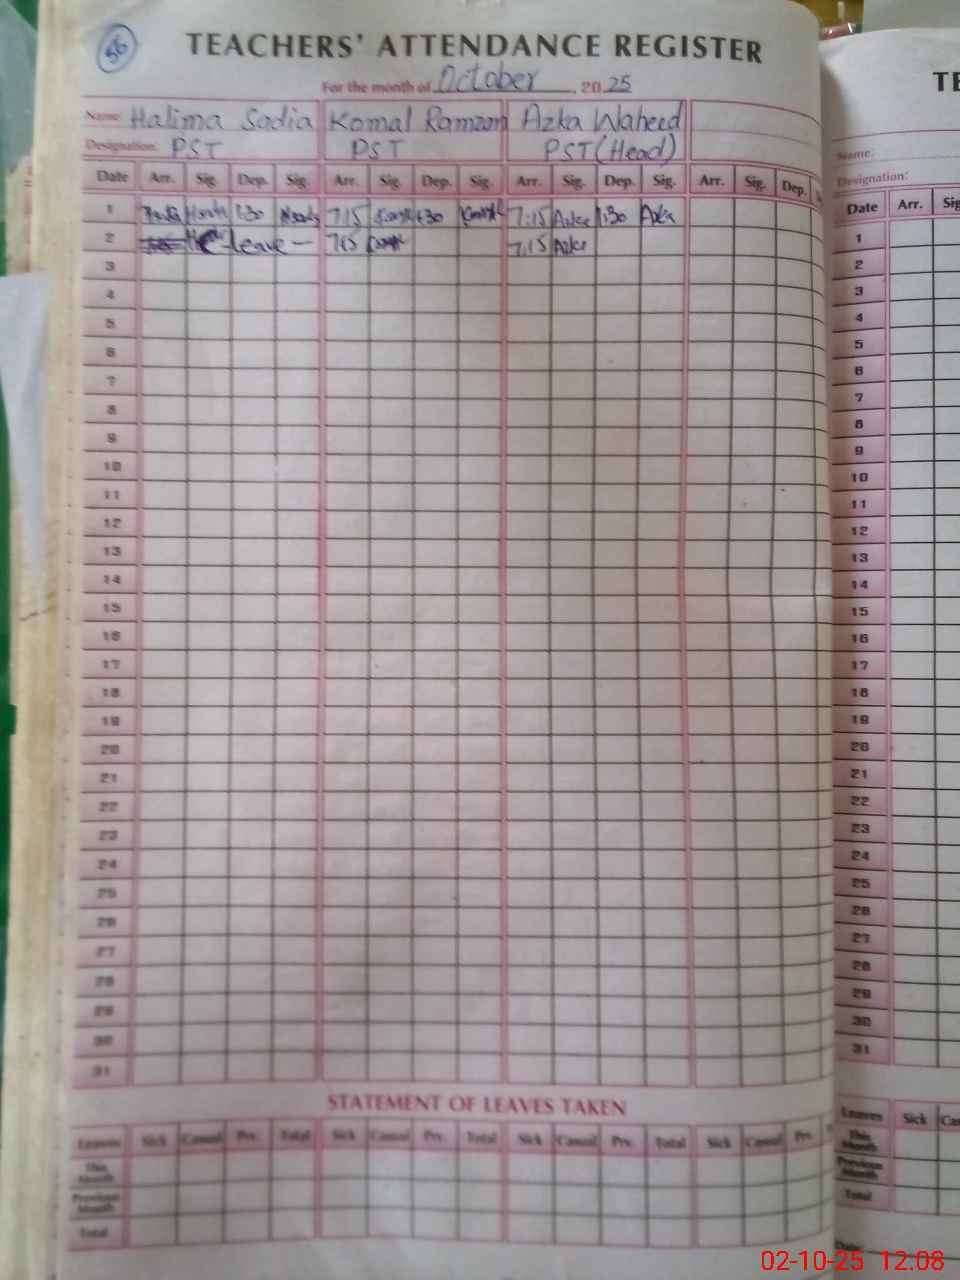 56
TEACHERS' ATTENDANCE REGISTER
For the month of October, 2025
Name: Halima Sadia Komal Ramzan Azka Waheed
Designation: PST PST PST (Head)
Date Arr. Sig. Dep. Sig. Arr. Sig. Dep. Sig. Arr. Sig. Dep. Sig. Arr. Sig. Dep.
1 1:30 7:15 1:30 7:15 Azka 1:30 Azka
2 leave — 7:15 7:15 Azka
3
4
5
6
7
8
9
10
11
12
13
14
15
16
17
18
19
20
21
22
23
24
25
26
27
28
29
30
31
STATEMENT OF LEAVES TAKEN
Leaves Sick Casual Prv. Total Sick Casual Prv. Total Sick Casual Prv. Total Sick Casual Prv.
This Month
Previous Month
Total
TE
Name:
Designation:
Date Arr. Sig
1
2
3
4
5
6
7
8
9
10
11
12
13
14
15
16
17
18
19
20
21
22
23
24
25
26
27
28
29
30
31
Leaves Sick Cas
This Month
Previous Month
Total
Date
02-10-25 12.08